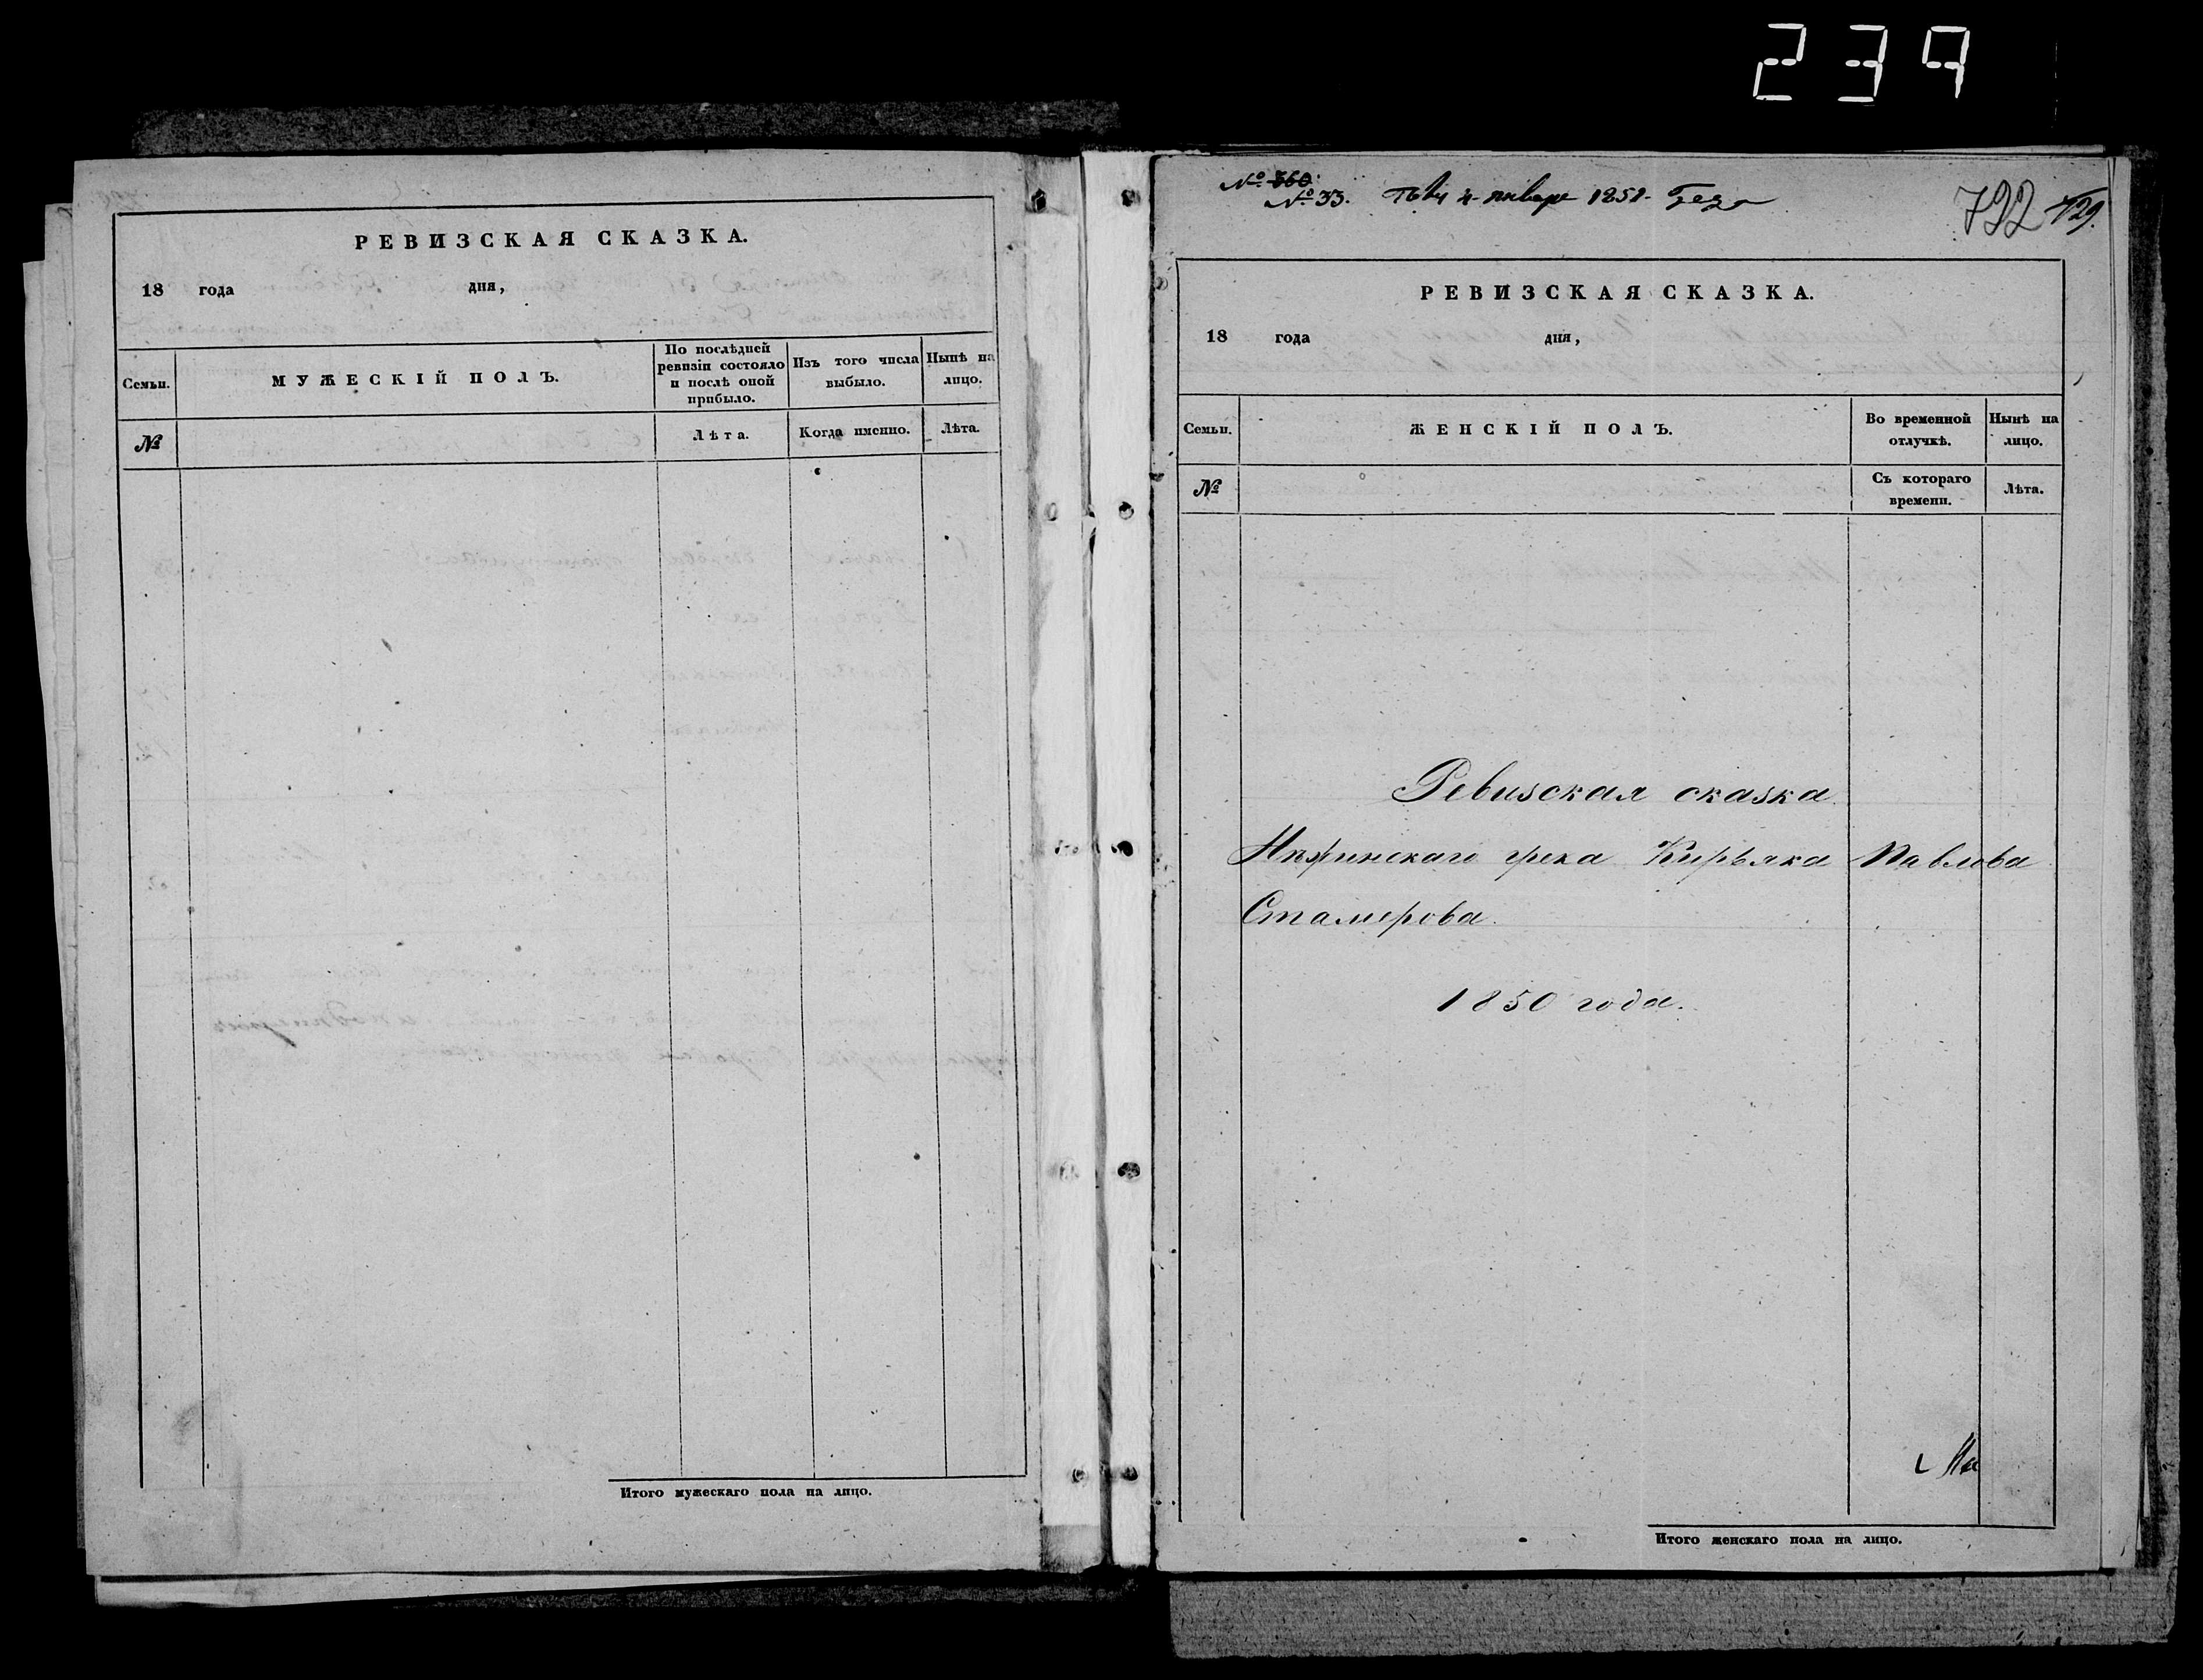 239
РЕВИЗСКАЯ СКАЗКА.
18 года дня,
Семьи.
МУЖЕСКІЙ ПОЛЪ.
По послѣдней
ревизіи состояло
и послѣ оной
прибыло.
Изъ того числа
выбыло.
Нынѣ на
лицо.
№
Лѣта.
Когда именно.
Лѣта.
Итого мужескаго пола на лицо.
№ 360
№ 33. 4 января 1851
792 729.
РЕВИЗСКАЯ СКАЗКА.
18 года дня,
Семьи.
ЖЕНСКІЙ ПОЛЪ.
Во временной
отлучкѣ.
Нынѣ на
лицо.
№
Съ котораго
времени.
Лѣта.
Ревизская сказка
Нѣжинскаго грека Кирьяка Павлова
Стамерова.
1850 года.
Итого женскаго пола на лицо.